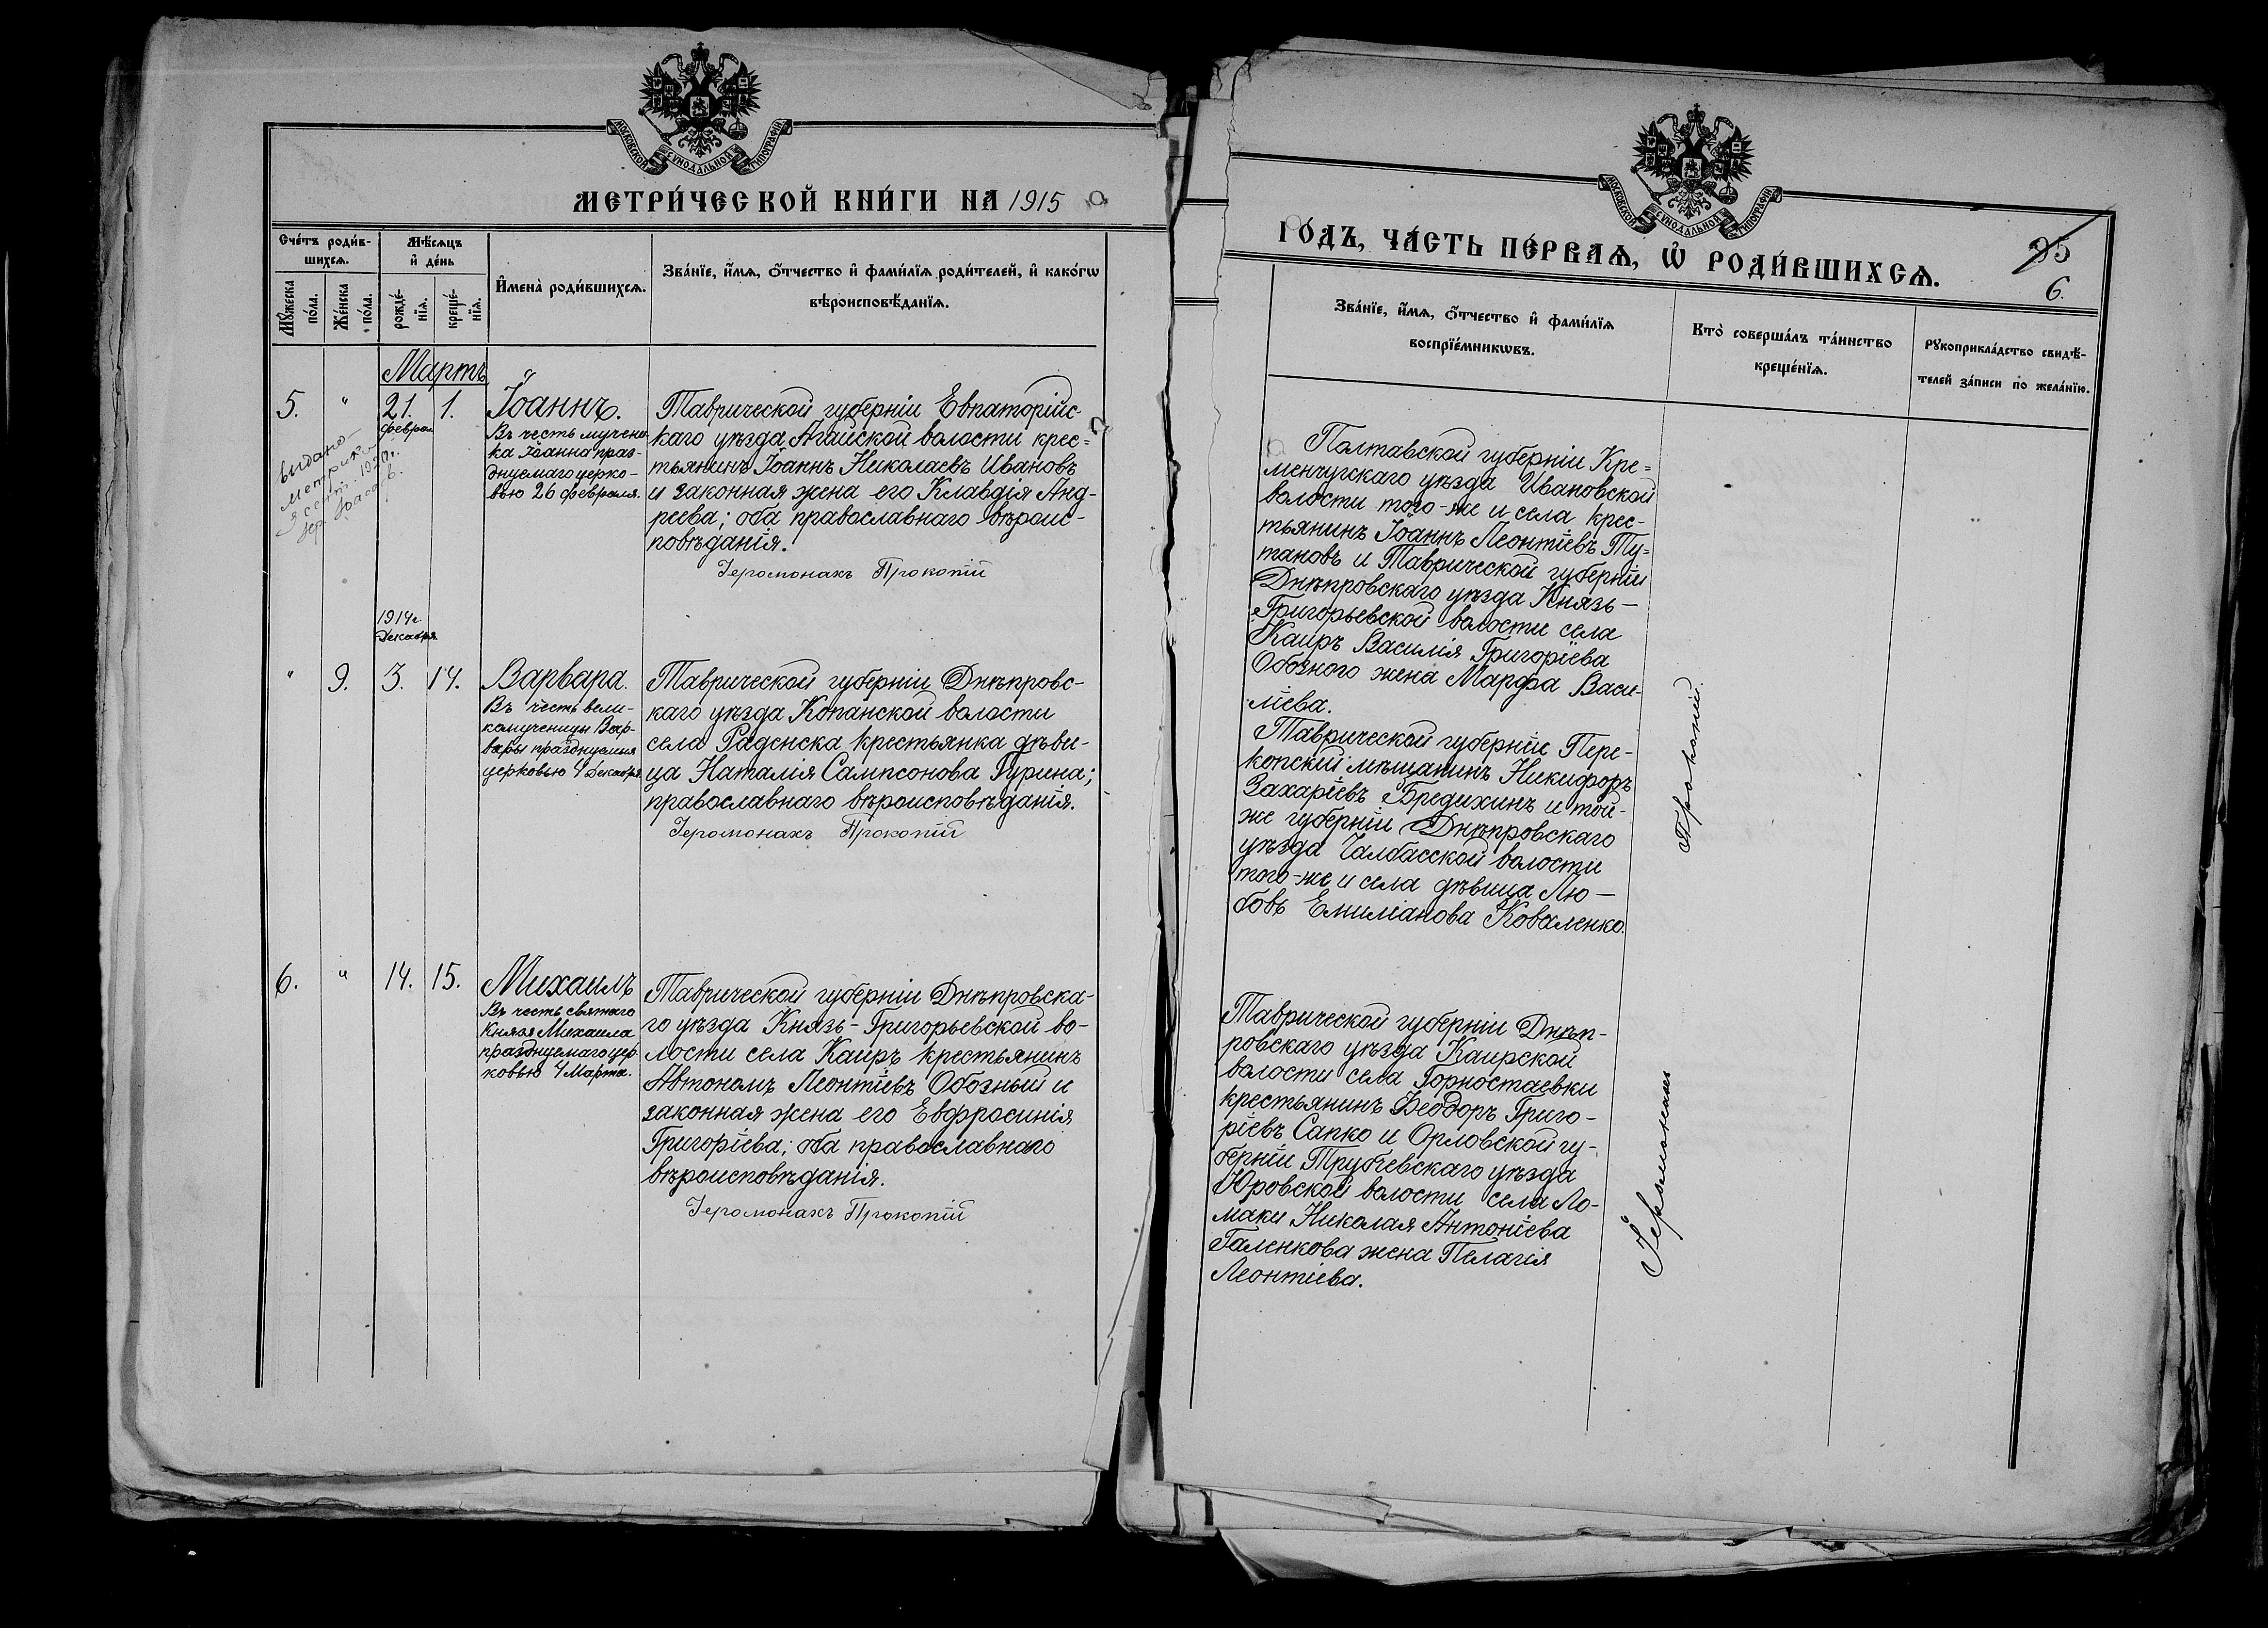 МОСКОВСКОЙ СѴНОДАЛЬНОЙ ТИПОГРАФІИ
МЕТРИ́ЧЕСКОЙ КНИ́ГИ НА 1915
Сче́тъ роди́в-
шихсѧ.
Мѣ́сѧцъ
и҆ де́нь
И҆мена̀ роди́вшихсѧ.
Зва́нїе, и҆́мѧ, ѻ҆́тчество и҆ фами́лїѧ роди́телей, и҆ како́гѡ
вѣроисповѣ́данїѧ.
Мꙋ́жеска
по́ла.
Же́нска
по́ла.
рожде́-
нїѧ.
креще́-
нїѧ.
Мартъ
5. " 21. 1. Іоаннъ.
Феврал
Въ честь мучени-
ка Іоанна праз-
днуемаго церко-
вью 26 февраля.
Таврической губерніи Евпаторійс-
каго уѣзда Агайской волости крес-
тьянинъ Іоаннъ Николаевъ Ивановъ
и законная жена его Клавдія Анд-
реева; оба православнаго вѣроис-
повѣданія.
Іеромонахъ Прокопій
выдано
метрика
1914г.
Декабря
" 9. 3. 14. Варвара.
Въ честь вели-
комученицы Вар-
вары празднуемыя
церковью 4 Декабря
Таврической губерніи Днѣпровс-
каго уѣзда Копанской волости
села Раденска крестьянка дѣви-
ца Наталія Сампсонова Гурина;
православнаго вѣроисповѣданія.
Іеромонахъ Прокопій
6. " 14. 15. Михаилъ
Въ честь святаго
Князя Михаила
празднуемаго цер-
ковью 4 Марта.
Таврической губерніи Днѣпровска-
го уѣзда Князь-Григорьевской во-
лости села Каиръ крестьянинъ
Автономъ Леонтіевъ Обозный и
законная жена его Евфросинія
Григоріева; оба православнаго
вѣроисповѣданія.
Іеромонахъ Прокопій
МОСКОВСКОЙ СѴНОДАЛЬНОЙ ТИПОГРАФІИ
ГО́ДЪ, ЧА́СТЬ ПЕ́РВАѦ, Ѡ҆ РОДИ́ВШИХСѦ.
6.
Зва́нїе, и҆́мѧ, ѻ҆́тчество и҆ фами́лїѧ
воспрїе́мникѡвъ.
Кто̀ соверша́лъ та́инство
креще́нїѧ.
Рꙋкоприкла́дство свидѣ́-
телей за́писи по жела́нїю.
Полтавской губерніи Кре-
менчугскаго уѣзда Ивановской
волости того-же и села крес-
тьянинъ Іоаннъ Леонтіевъ Ту-
тановъ и Таврической губерніи
Днѣпровскаго уѣзда Князь-
Григорьевской волости села
Каиръ Василія Григоріева
Обозного жена Марфа Васи-
ліева.
Таврической губерніи Пере-
копскій мѣщанинъ Никифоръ
Захаріевъ Бредихинъ и той-
же губерніи Днѣпровскаго
уѣзда Чалбасской волости
того-же и села дѣвица Лю-
бовь Емиліанова Коваленко.
Таврической губерніи Днѣп-
ровскаго уѣзда Каирской
волости села Горностаевки
крестьянинъ Ѳеодоръ Григо-
ріевъ Сапко и Орловской гу-
берніи Трубчевскаго уѣзда
Юровской волости села Ло-
маки Николая Антоніева
Галенкова жена Пелагія
Леонтіева.
Іеромонахъ Прокопій.